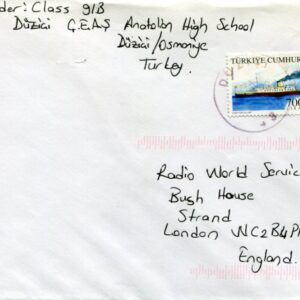 der: Class 9/B
Düziçi Ç.E.A.Ş Anatolian High School
Düziçi/Osmaniye
Turkey.
TÜRKİYE CUMHUR
700
Radio World Servic
Bush House
Strand
London WC2B4PH
England.